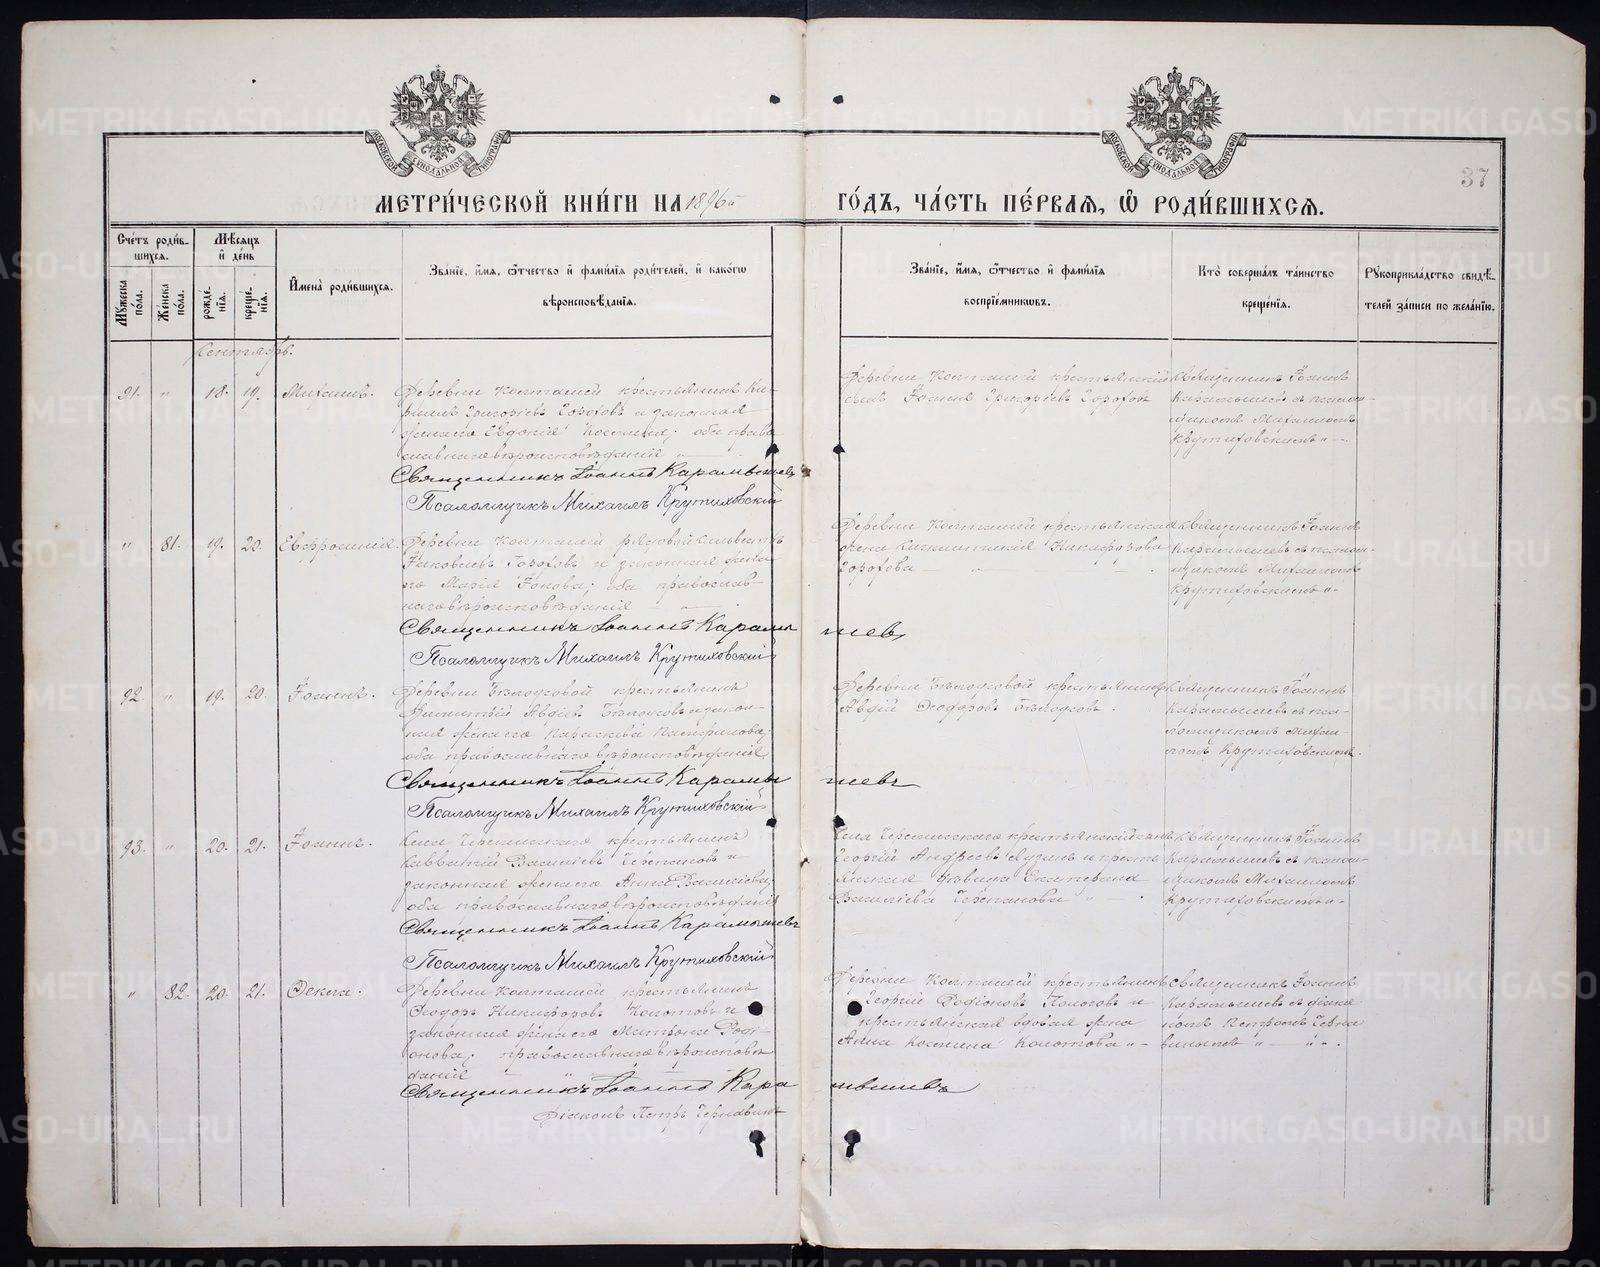 МОСКОВСКОЙ СѴНОДАЛЬНОЙ ТИПОГРАФІИ
МОСКОВСКОЙ СѴНОДАЛЬНОЙ ТИПОГРАФІИ
37
МЕТРИ́ЧЕСКОЙ КНИ́ГИ НА 1896й
ГО́ДЪ, ЧА́СТЬ ПЕ́РВАЯ, Ѡ РОДИ́ВШИХСЯ.
Сче́тъ роди́в-
шихся.
Мѣ́сяцъ
и де́нь
Мꙋ́жеска по́ла.
Же́нска по́ла.
рожде́-нїя.
креще́-нїя.
И҆мена̀ роди́вшихся.
Зва́нїе, и҆́мя, ѻ҆́тчество и҆ фами́лїя роди́телей, и҆ како́гѡ
вѣроисповѣ́данїя.
Зва́нїе, и҆́мя, ѻ҆́тчество и҆ фами́лїя
воспрїе́мникѡвъ.
Кто̀ соверша́лъ та́инство
креще́нїя.
Рꙋкоприкла́дство свидѣ́-
телей за́писи по жела́нїю.
Сентябрь.
91. " 18. 19. Михаилъ.
Деревни Колташей крестьянинъ Ки-
Григорьевъ Гороховъ и законная
жена его Евдокія Козмина; оба право-
славнаго вѣроисповѣданія
Священникъ Іоаннъ Карамышевъ
Псаломщикъ Михаилъ Крутиховскій
Деревни Колташей крестьянскій
сынъ Іоаннъ Григорьевъ Гороховъ
Священникъ Іоаннъ
Карамышевъ съ псалом-
щикомъ Михаиломъ
Крутиховскимъ
" 81. 19. 20. Евфросинія.
Деревни Колташей рядовой Сильвестръ
Яковлевъ Гороховъ и законная жена
его Марія Іонова; оба православ-
наго вѣроисповѣданія
Священникъ Іоаннъ Карамы
шевъ
Псаломщикъ Михаилъ Крутиховскій
Деревни Колташей крестьянская
жена Никифорова
Горохова
Священникъ Іоаннъ
Карамышевъ съ псалом-
щикомъ Михаиломъ
Крутиховскимъ
92. " 19. 20. Іоаннъ.
Деревни Бѣлоусовой крестьянинъ
Авдіевъ Бѣлоусовъ и закон-
ная жена его Параскева Панфилова;
оба православнаго вѣроисповѣданія
Священникъ Іоаннъ Карамы
шевъ
Псаломщикъ Михаилъ Крутиховскій
Деревни Бѣлоусовой крестьянинъ
Авдій Ѳеодоровъ Бѣлоусовъ.
Священникъ Іоаннъ
Карамышевъ съ пса-
ломщикомъ Михаи-
ломъ Крутиховскимъ.
93. " 20. 21. Іоаннъ.
Села Черемисскаго крестьянинъ
Савватій Васильевъ Черепановъ и
законная жена его Анна Васильева;
оба православнаго вѣроисповѣданія
Священникъ Іоаннъ Карамышевъ
Псаломщикъ Михаилъ Крутиховскій
Села Черемисскаго крестьянскій сынъ
Георгій Андреевъ и кресть-
янская дѣвица Екатерина
Васильева Черепанова
Священникъ Іоаннъ
Карамышевъ съ псалом-
щикомъ Михаиломъ
Крутиховскимъ
" 82. 20. 21. Ѳекла.
Деревни Колташей крестьянинъ
Ѳеодоръ Никифоровъ Колотовъ и
законная жена его Матрона Роді-
онова; православнаго вѣроисповѣ
данія
Священникъ Іоаннъ Кара
мышевъ
Діаконъ Петръ Чернавинъ
Деревни Колташей крестьянинъ
Георгій Родіоновъ и
крестьянская вдовая жена
Анна Козмина Колотова
Священникъ Іоаннъ
Карамышевъ съ діако
номъ Петромъ Черна
винымъ
METRIKI.GASO-URAL.RU